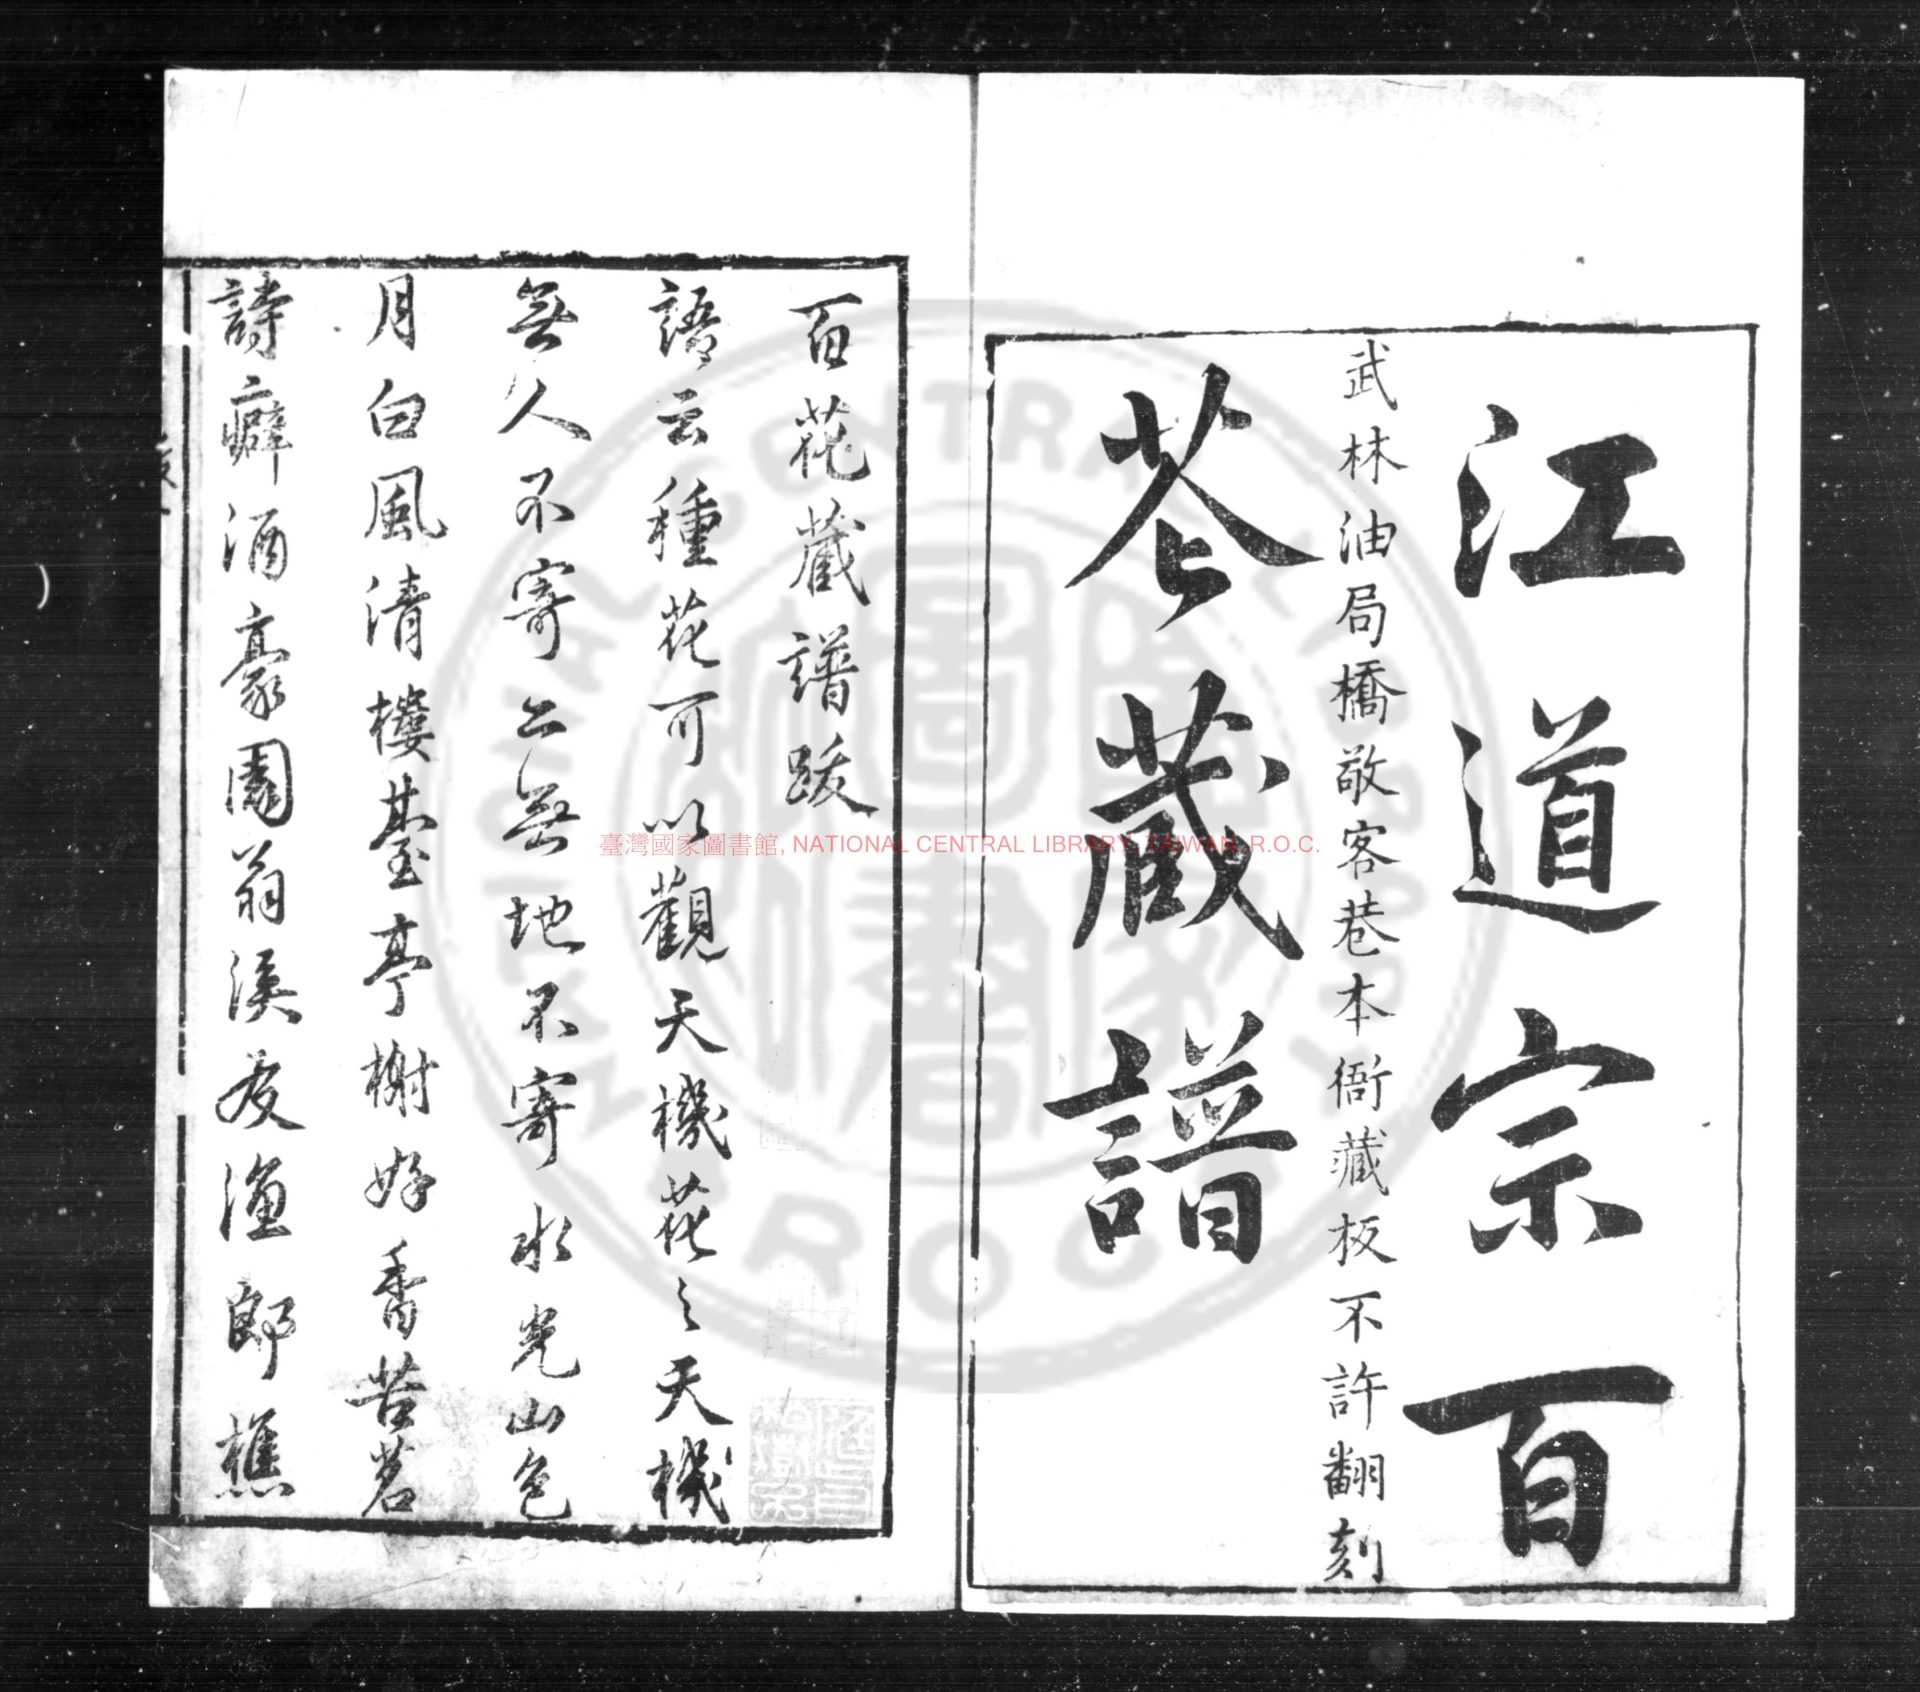 江道宗百
武林油局橋敬客巷本衙藏板不許翻刻
花藏譜
百花藏譜跋
語云種花可以觀天機花之天機
無人不寄亦無地不寄水光山色
月白風清樓臺亭榭好香苦茗
詩癖酒豪園翁溪友漁郎樵
臺灣國家圖書館, NATIONAL CENTRAL LIBRARY, TAIWAN, R.O.C.